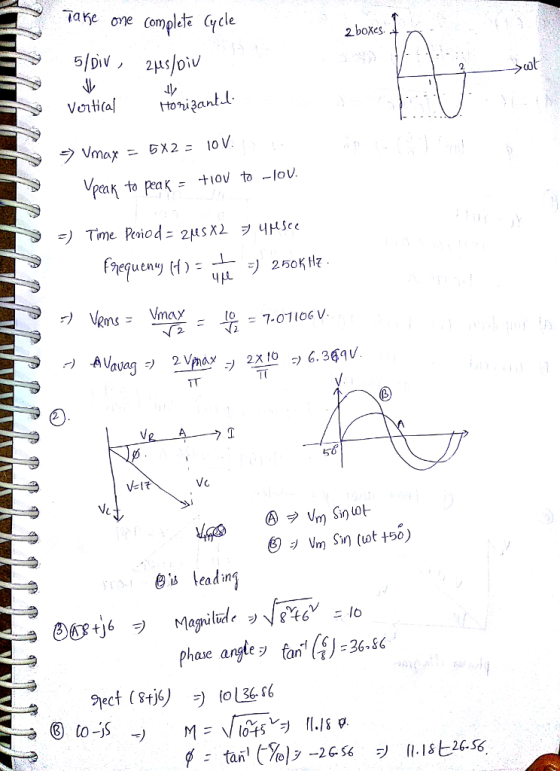 Take one complete cycle
2 boxes.
5/DIV , 2μs/DIV
⇓ ⇓
Vertical Horizantal.
1 2 ωt
⇒ Vmax = 5×2 = 10V.
Vpeak to peak = +10V to -10V.
⇒ Time Period = 2μs×2 ⇒ 4μsec
Frequency (f) = 1/4μ ⇒ 250KHz.
⇒ VRms = Vmax/√2 = 10/√2 = 7.07106V.
⇒ AVavag ⇒ 2Vmax/π ⇒ 2×10/π ⇒ 6.369V.
②.
VR A I
φ.
V=IZ Vc
Vc
V B
A
50°
Ⓐ ⇒ Vm Sinωt
Ⓑ ⇒ Vm Sin (ωt +50°)
B is leading
③ Ⓐ 8+j6 ⇒ Magnitude ⇒ √8²+6² = 10
phase angle ⇒ tan⁻¹(6/8) = 36.86
rect (8+j6) ⇒ 10∠36.86
Ⓑ 10-j5 ⇒ M = √10²+5² ⇒ 11.18
φ = tan⁻¹(-5/10) ⇒ -26.56 ⇒ 11.18∠-26.56.